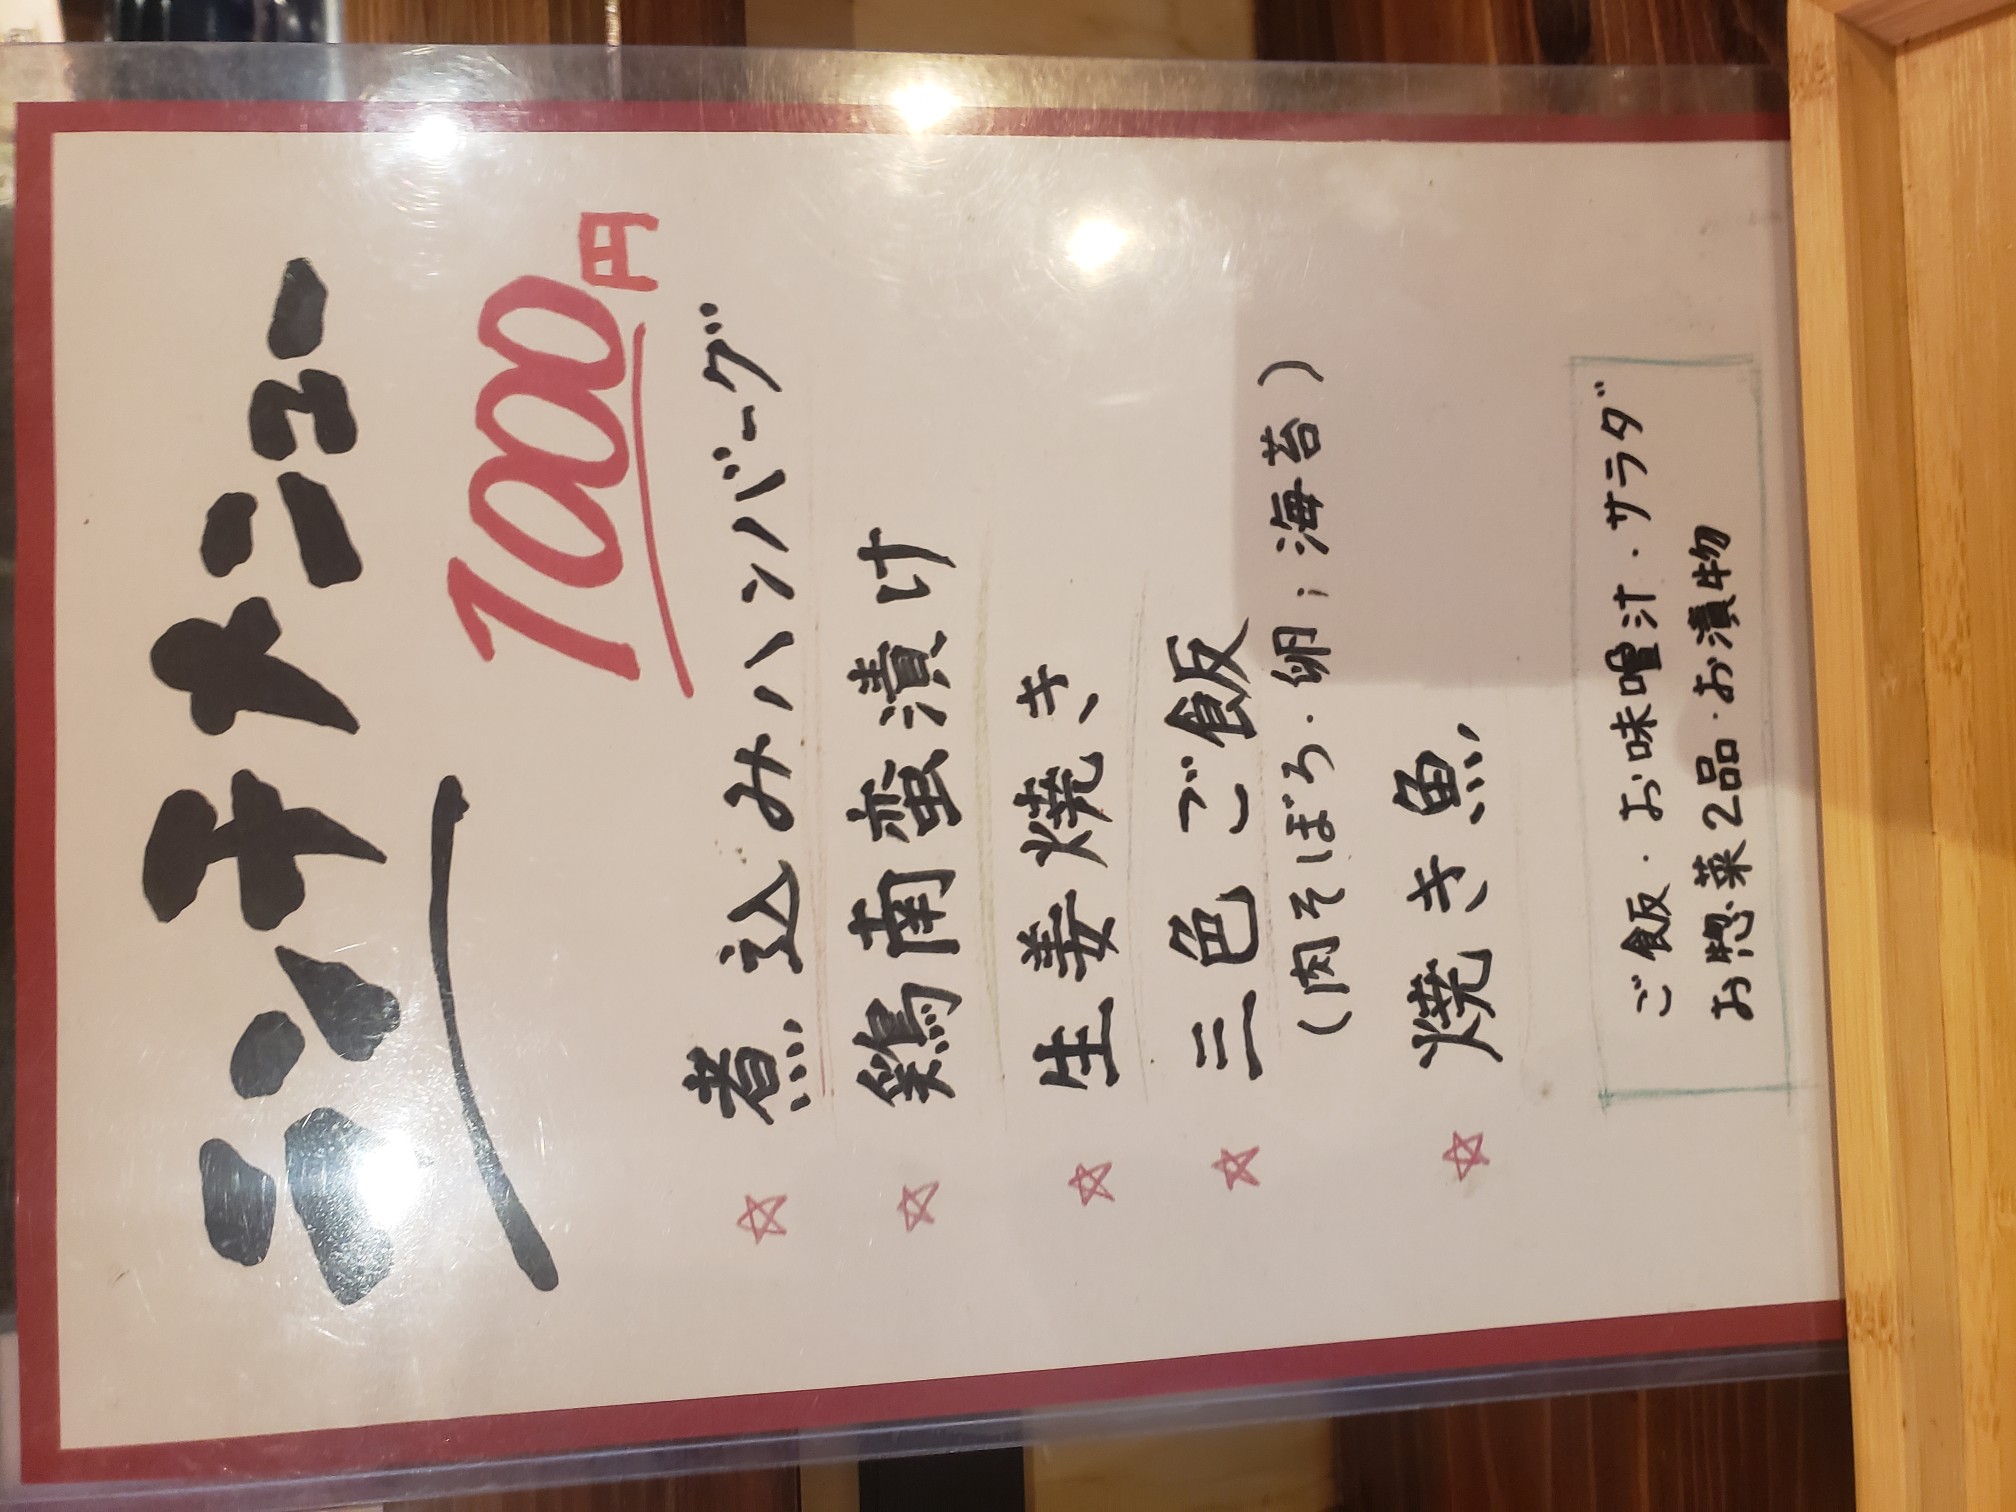 ランチメニュー
1000円
☆ 煮込みハンバーグ
☆ 鶏南蛮漬け
☆ 生姜焼き
☆ 三色ご飯
(肉そぼろ・卵；海苔)
☆ 焼き魚
ご飯・お味噌汁・サラダ
お惣菜2品・お漬物